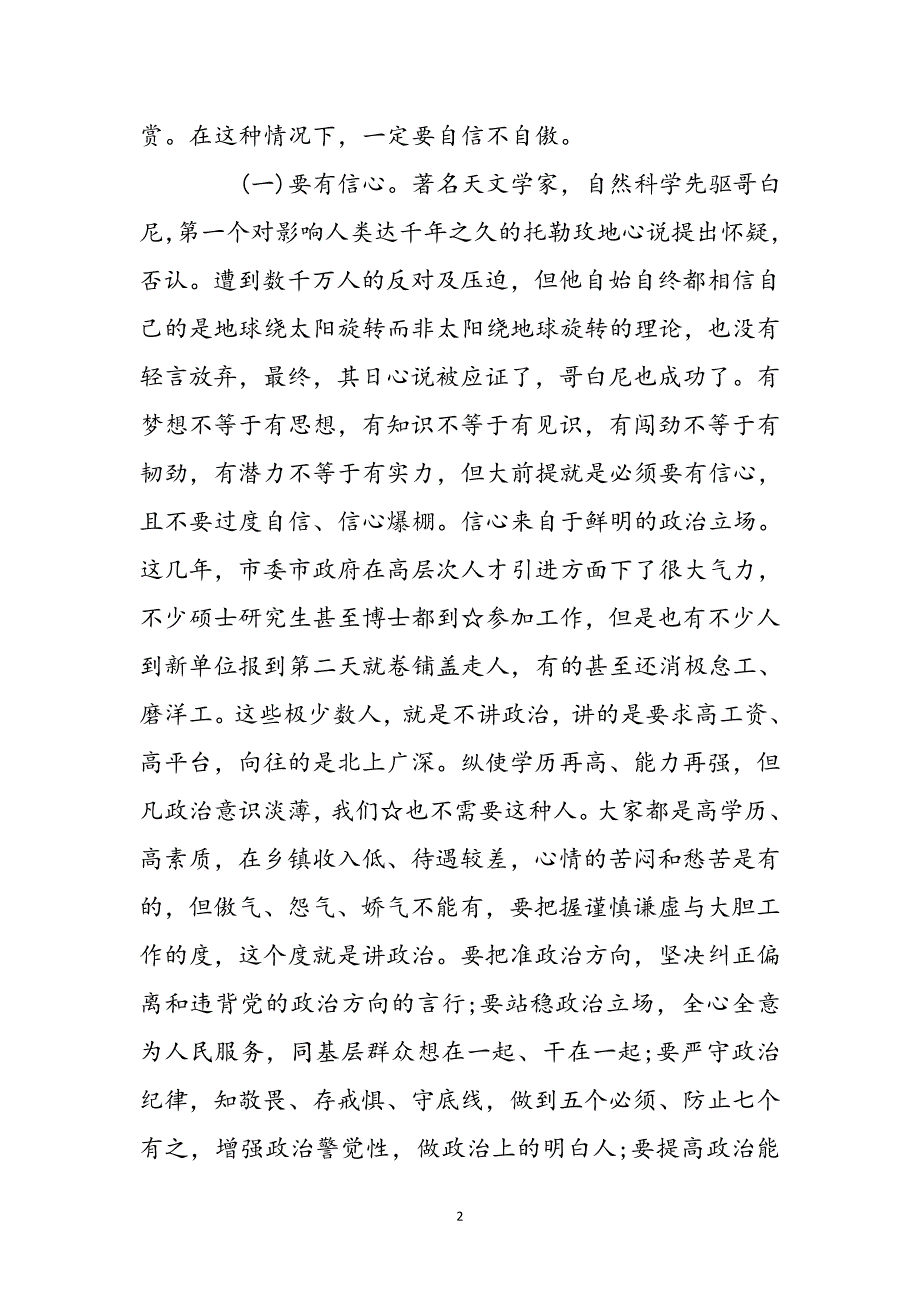 赏。在这种情况下，一定要自信不自傲。
(一)要有信心。著名天文学家，自然科学先驱哥白
尼,第一个对影响人类达千年之久的托勒玫地心说提出怀疑，
否认。遭到数千万人的反对及压迫，但他自始自终都相信自
己的是地球绕太阳旋转而非太阳绕地球旋转的理论，也没有
轻言放弃，最终，其日心说被应证了，哥白尼也成功了。有
梦想不等于有思想，有知识不等于有见识，有闯劲不等于有
韧劲，有潜力不等于有实力，但大前提就是必须要有信心，
且不要过度自信、信心爆棚。信心来自于鲜明的政治立场。
这几年，市委市政府在高层次人才引进方面下了很大气力，
不少硕士研究生甚至博士都到☆参加工作，但是也有不少人
到新单位报到第二天就卷铺盖走人，有的甚至还消极怠工、
磨洋工。这些极少数人，就是不讲政治，讲的是要求高工资、
高平台，向往的是北上广深。纵使学历再高、能力再强，但
凡政治意识淡薄，我们☆也不需要这种人。大家都是高学历、
高素质，在乡镇收入低、待遇较差，心情的苦闷和愁苦是有
的，但傲气、怨气、娇气不能有，要把握谨慎谦虚与大胆工
作的度，这个度就是讲政治。要把准政治方向，坚决纠正偏
离和违背党的政治方向的言行;要站稳政治立场，全心全意
为人民服务，同基层群众想在一起、干在一起;要严守政治
纪律，知敬畏、存戒惧、守底线，做到五个必须、防止七个
有之，增强政治警觉性，做政治上的明白人;要提高政治能
2